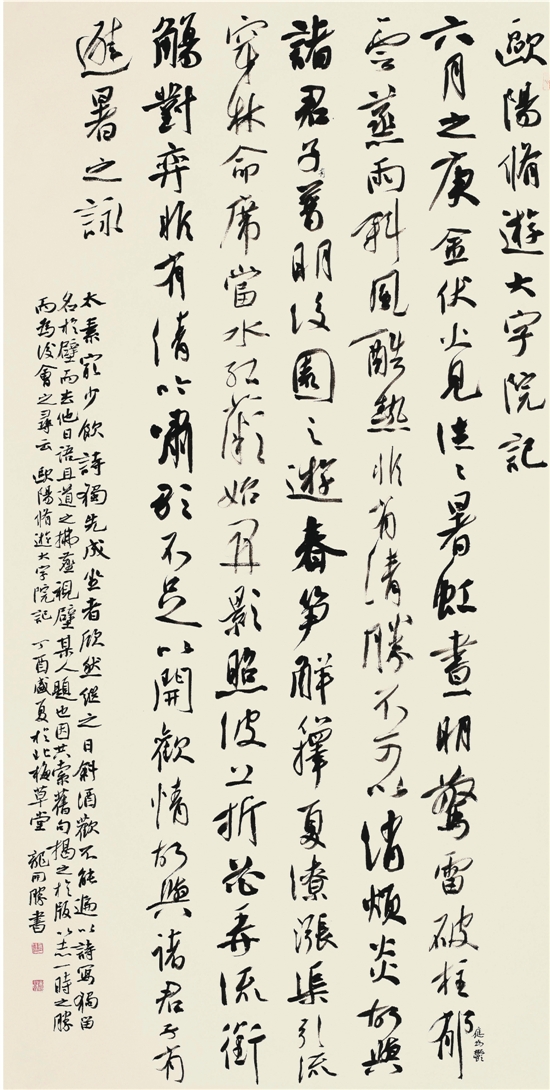 歐陽脩遊大字院記
六月之庚金伏火見往〻暑虹晝明驚雷破柱郁應為鬱
雲蒸雨斜風酷熱非有清勝不可以消煩炎故與
諸君子有普明後園之遊春笋解籜夏潦漲渠引流
穿林命席當水紅薇始開影照波上折花弄流銜
觴對弈非有清吟嘯歌不足以開歡情故與諸君子有
避暑之詠
太素最少飲詩獨先成坐者欣然繼之日斜酒歡不能遍以詩寫獨留
名於壁而去他日語且道之拂塵視壁某人題也因共索舊句揭之於版以志一時之勝
而為後會之尋云 歐陽脩遊大字院記 丁酉盛夏於北梅草堂 龍開勝書